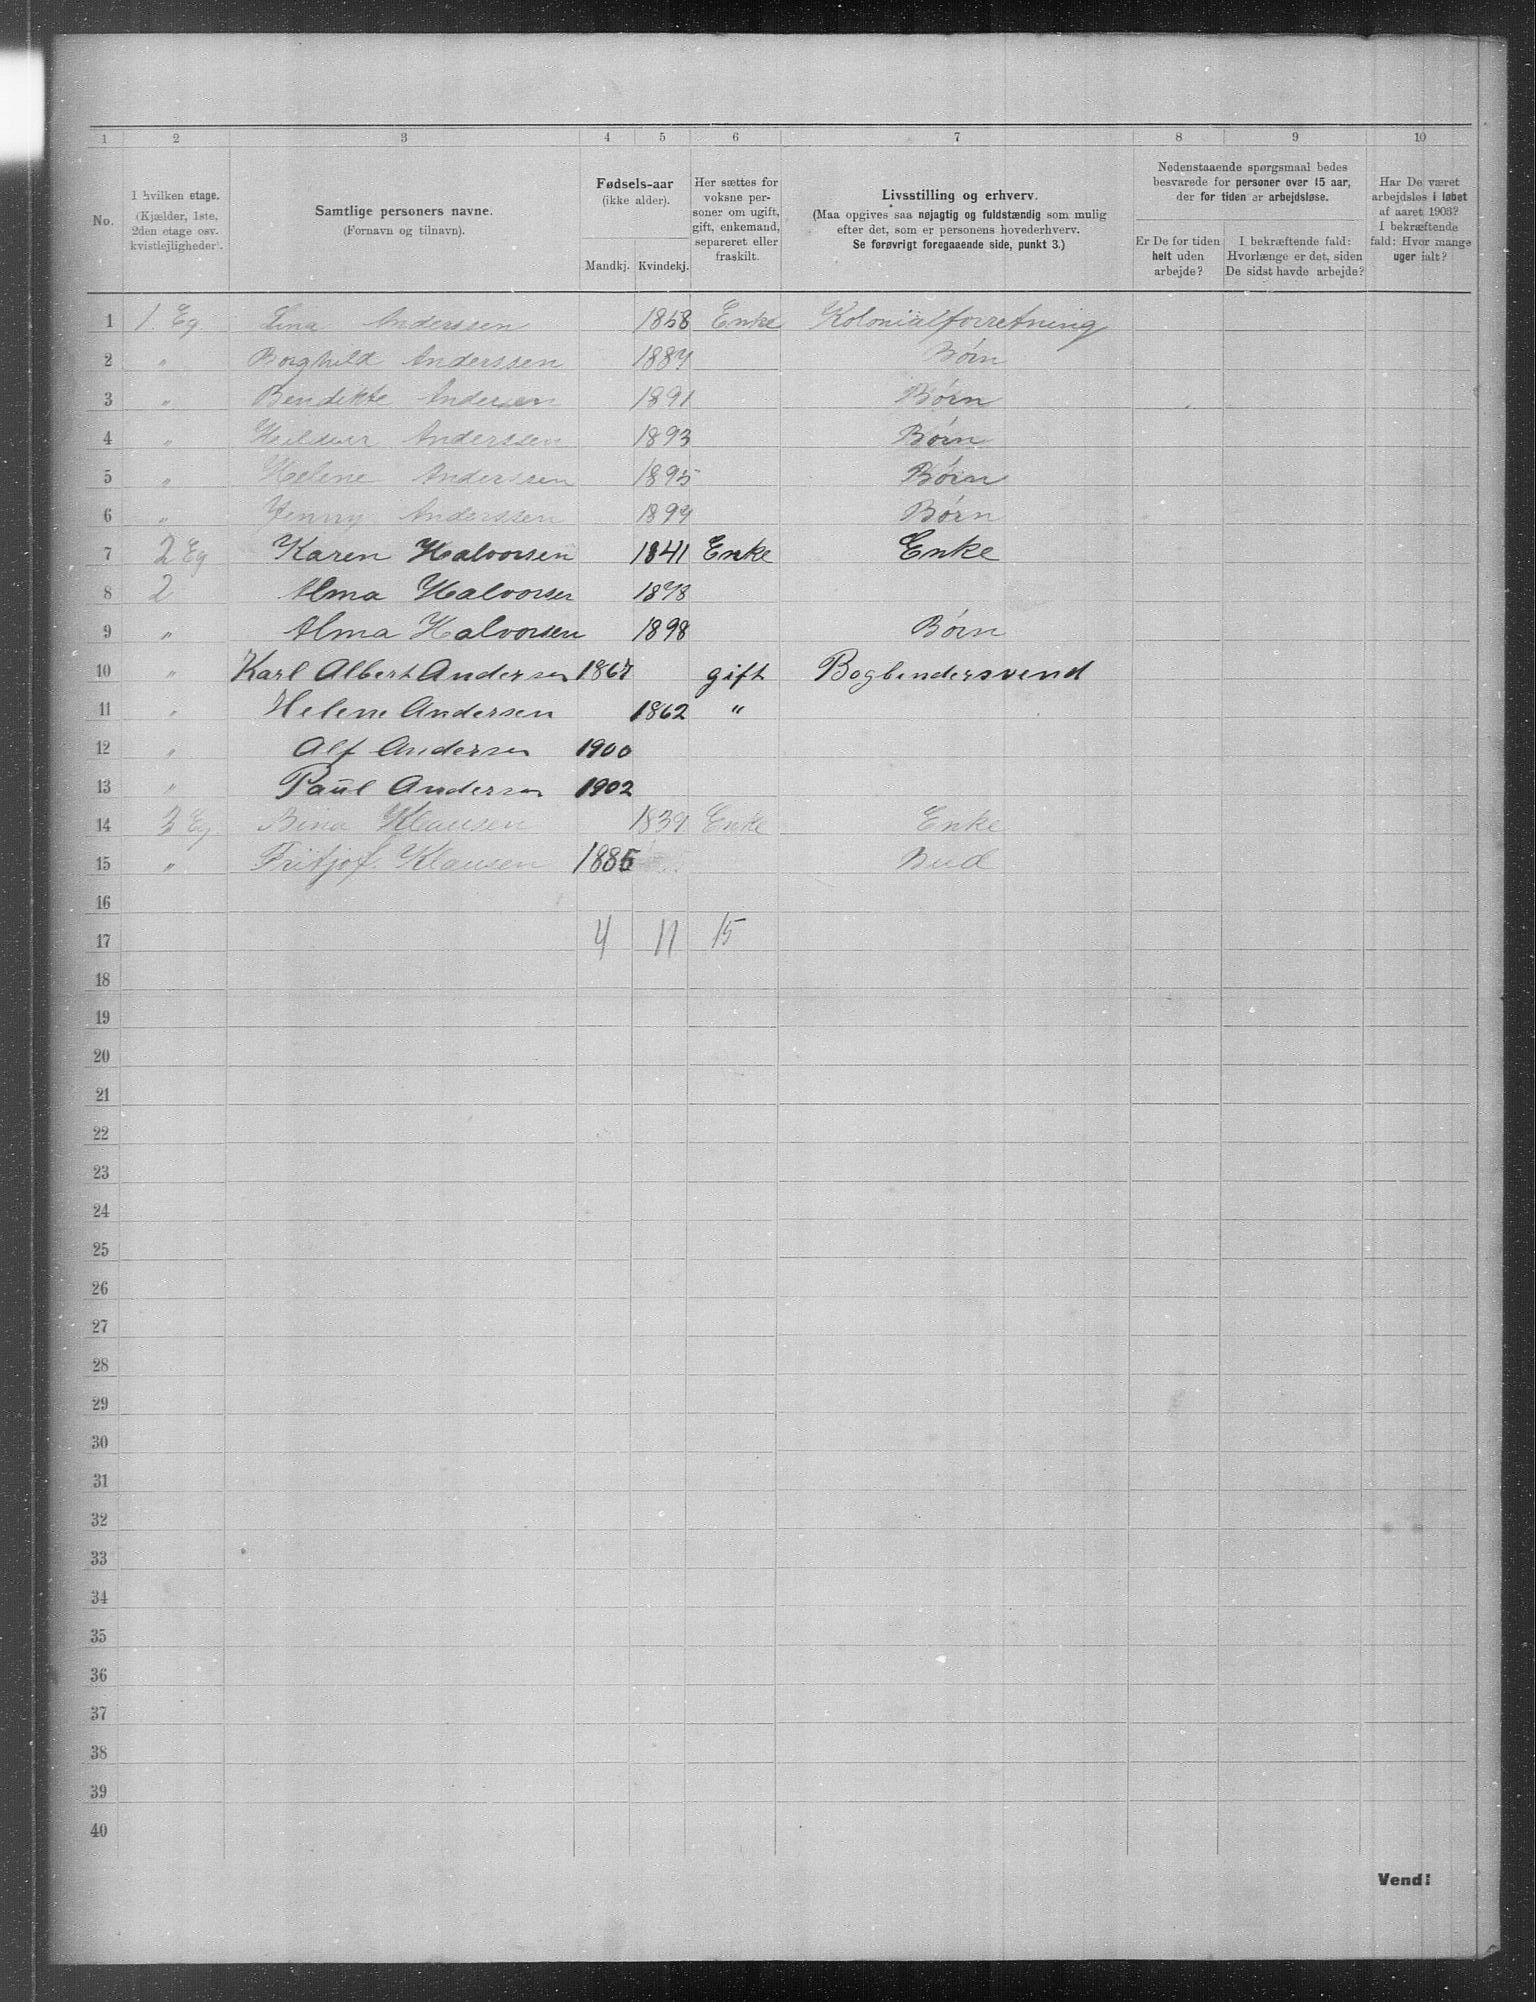 1 2 3 4 5 6 7 8 9 10
No.
I hvilken etage.
(Kjælder, 1ste,
2den etage osv.
kvistlejligheder).
Samtlige personers navne.
(Fornavn og tilnavn).
Fødsels-aar
(ikke alder).
Mandkj. Kvindekj.
Her sættes for
voksne per-
soner om ugift,
gift, enkemand,
separeret eller
fraskilt.
Livsstilling og erhverv.
(Maa opgives saa nøjagtig og fuldstændig som mulig
efter det, som er personens hovederhverv.
Se forøvrigt foregaaende side, punkt 3.)
Nedenstaaende spørgsmaal bedes
besvarede for personer over 15 aar,
der for tiden er arbejdsløse.
Er De for tiden
helt uden
arbejde?
I bekræftende fald:
Hvorlænge er det, siden
De sidst havde arbejde?
Har De været
arbejdsløs i løbet
af aaret 1903?
I bekræftende
fald: Hvor mange
uger ialt?
1 1. Eg Lina Anderssen 1858 Enke Kolonialforretning
2 " Borghild Anderssen 1887 Børn
3 " Bendikte Andersen 1891 Børn
4 " Anderssen 1893 Børn
5 " Helene Anderssen 1895 Børn
6 " Jenny Anderssen 1899 Børn
7 2 Eg Karen Halvorsen 1841 Enke Enke
8 2 Alma Halvorsen 1878
9 " Alma Halvorsen 1898 Børn
10 " Karl Albert Andersen 1867 gift Bogbindersvend
11 " Helene Andersen 1862 "
12 " Alf Andersen 1900
13 " Paul Andersen 1902
14 3 Eg Bina Klausen 1839 Enke Enke
15 " Fritjof Klausen 1885 Bud
16
17 4 11 15
18
19
20
21
22
23
24
25
26
27
28
29
30
31
32
33
34
35
36
37
38
39
40
Vend!